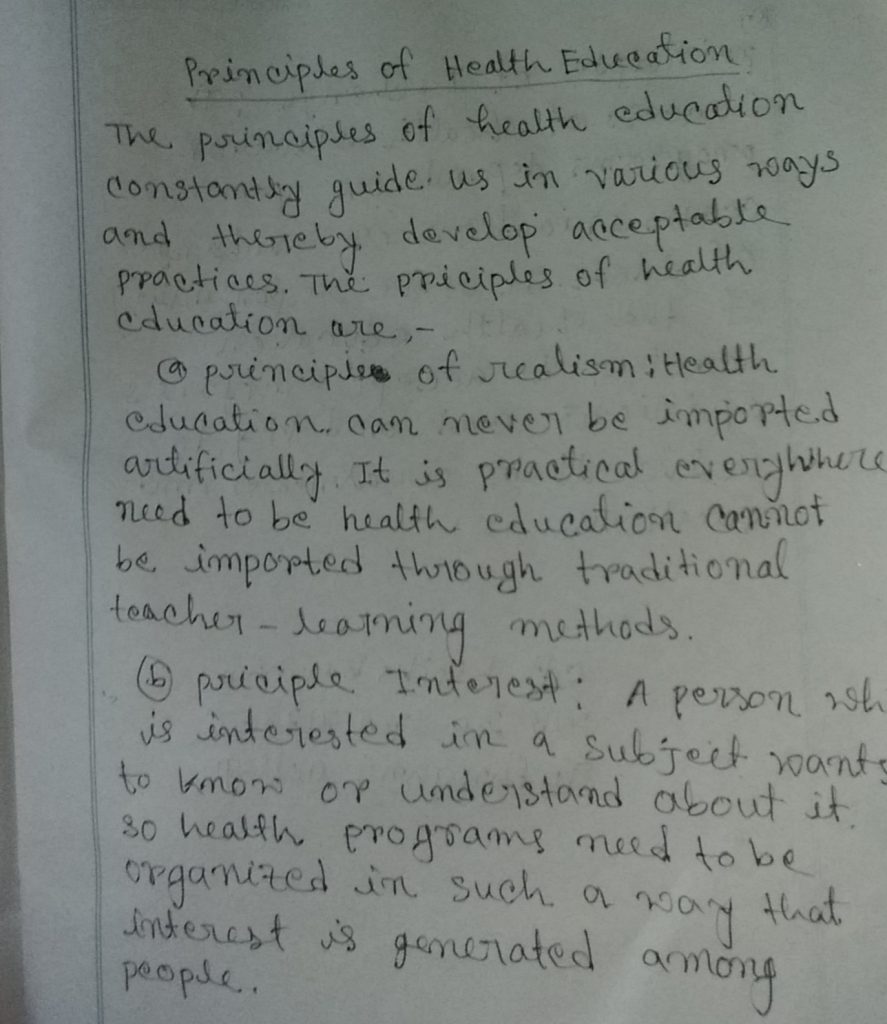 Principles of Health Education
The principles of health education
constantly guide us in various ways
and thereby develop acceptable
practices. The priciples of health
education are,-
(a) principles of realism : Health
education can never be imported
artificially. It is practical everywhere
need to be health education cannot
be imported through traditional
teacher - learning methods.
(b) priciple Interest : A person wh
is interested in a subject wants
to know or understand about it.
so health programs need to be
organized in such a way that
interest is generated among
people.